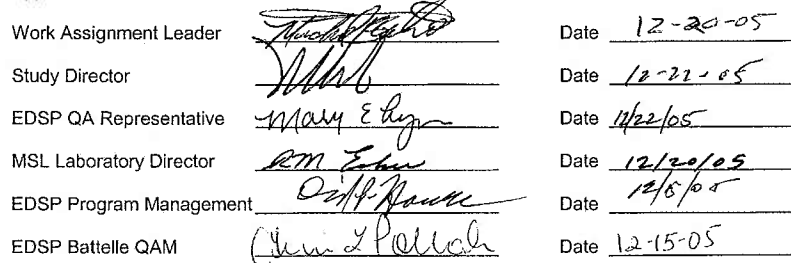 Work Assignment Leader Date 12-20-05
Study Director Date 12-22-05
EDSP QA Representative Mary E Date 12/22/05
MSL Laboratory Director Date 12/20/05
EDSP Program Management Date
EDSP Battelle QAM Date 12-15-05